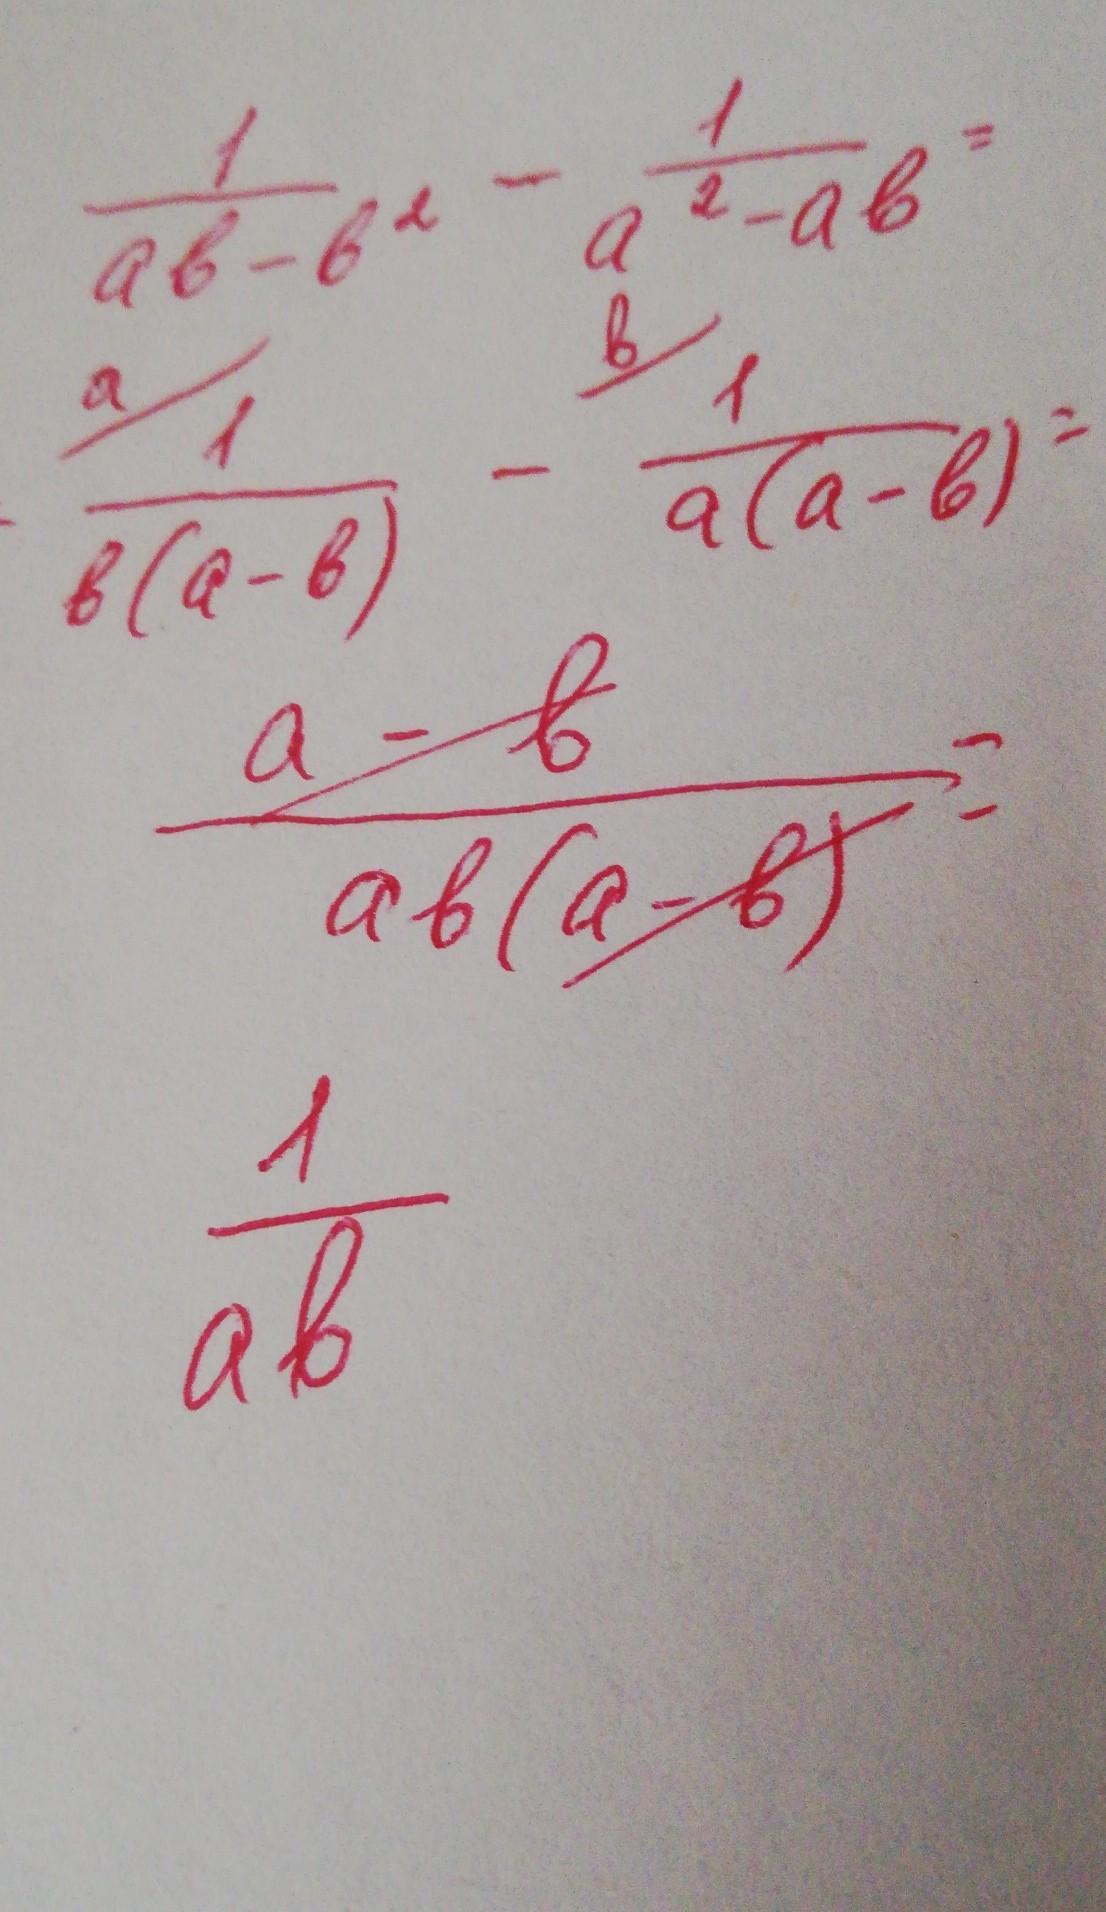 1/(ab-b²) - 1/(a²-ab) =
= a/ 1/(b(a-b)) - b/ 1/(a(a-b)) =
(a-b)/(ab(a-b)) =
1/(ab)